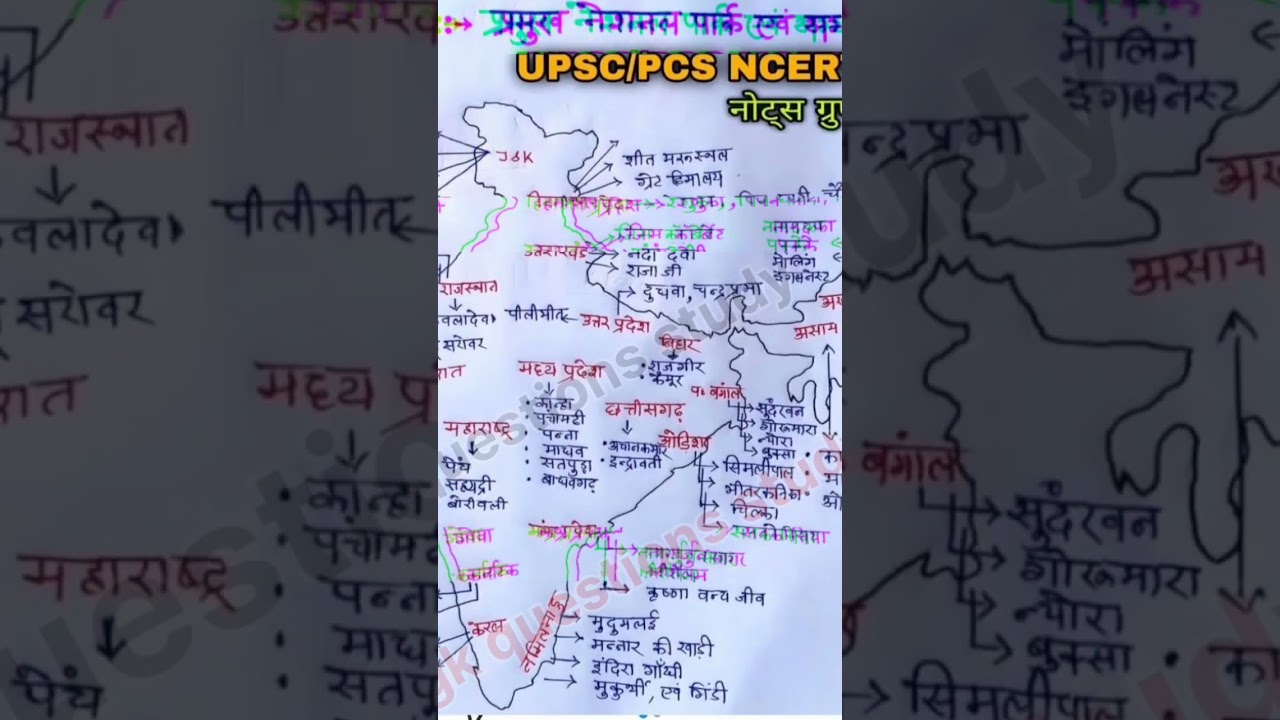 प्रमुख नेशनल पार्क एवं
UPSC/PCS NCER
नोट्स ग्रु
J&K
शीत मरुस्थल
ग्रेट हिमालय
हिमाचल प्रदेश
उत्तराखंड
जिम कॉर्बेट
नंदा देवी
राजा जी
दुधवा, चन्द्रप्रभा
नामदफा
मोलिंग
ईगलनेस्ट
राजस्थान
वलादेव
सरोवर
पीलीभीत
उत्तर प्रदेश
असाम
बिहार
राजगीर
कैमूर
रात
मध्य प्रदेश
कान्हा
पंचामढी
पन्ना
माधव
सतपुड़ा
बाधवगढ़
छत्तीसगढ़
अचानकमार
इन्द्रावती
प० बंगाल
सुंदरवन
गोरूमारा
न्योरा
बुक्सा
महाराष्ट्र
पेंच
सह्याद्री
बोरीवली
ओड़िशा
सिमलीपाल
भीतरकनिका
चिल्का
सतकोसिया
गोवा
कर्नाटक
केरल
आंध्र प्रदेश
नागार्जुन सागर
श्रीशैलम
कृष्णा वन्य जीव
तमिलनाडु
मुदुमलई
मन्नार की खाड़ी
इंदिरा गाँधी
मुकुर्थी, एवं गिंडी
gk questions study